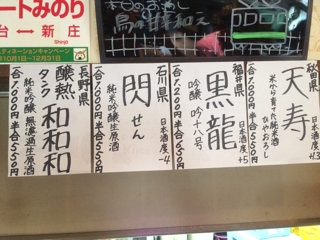 ートみのり
台↔新庄
Shinjō
ディネーションキャンペーン
10月1日~12月31日
本日のお通し
鳥の甘辛和え
秋田県
日本酒度+1.3
天寿
米から育てた純米酒
ひやおろし
一合1000円半合550円
福井県
日本酒度+5
黒龍
吟醸 吟十八号
一合1200円半合650円
石川県
日本酒度-4
閃
せん
純米吟醸生原酒
一合1000円半合550円
長野県
醸熱
タンク
和和和
純米吟醸 無濾過生原酒
一合1000円半合550円